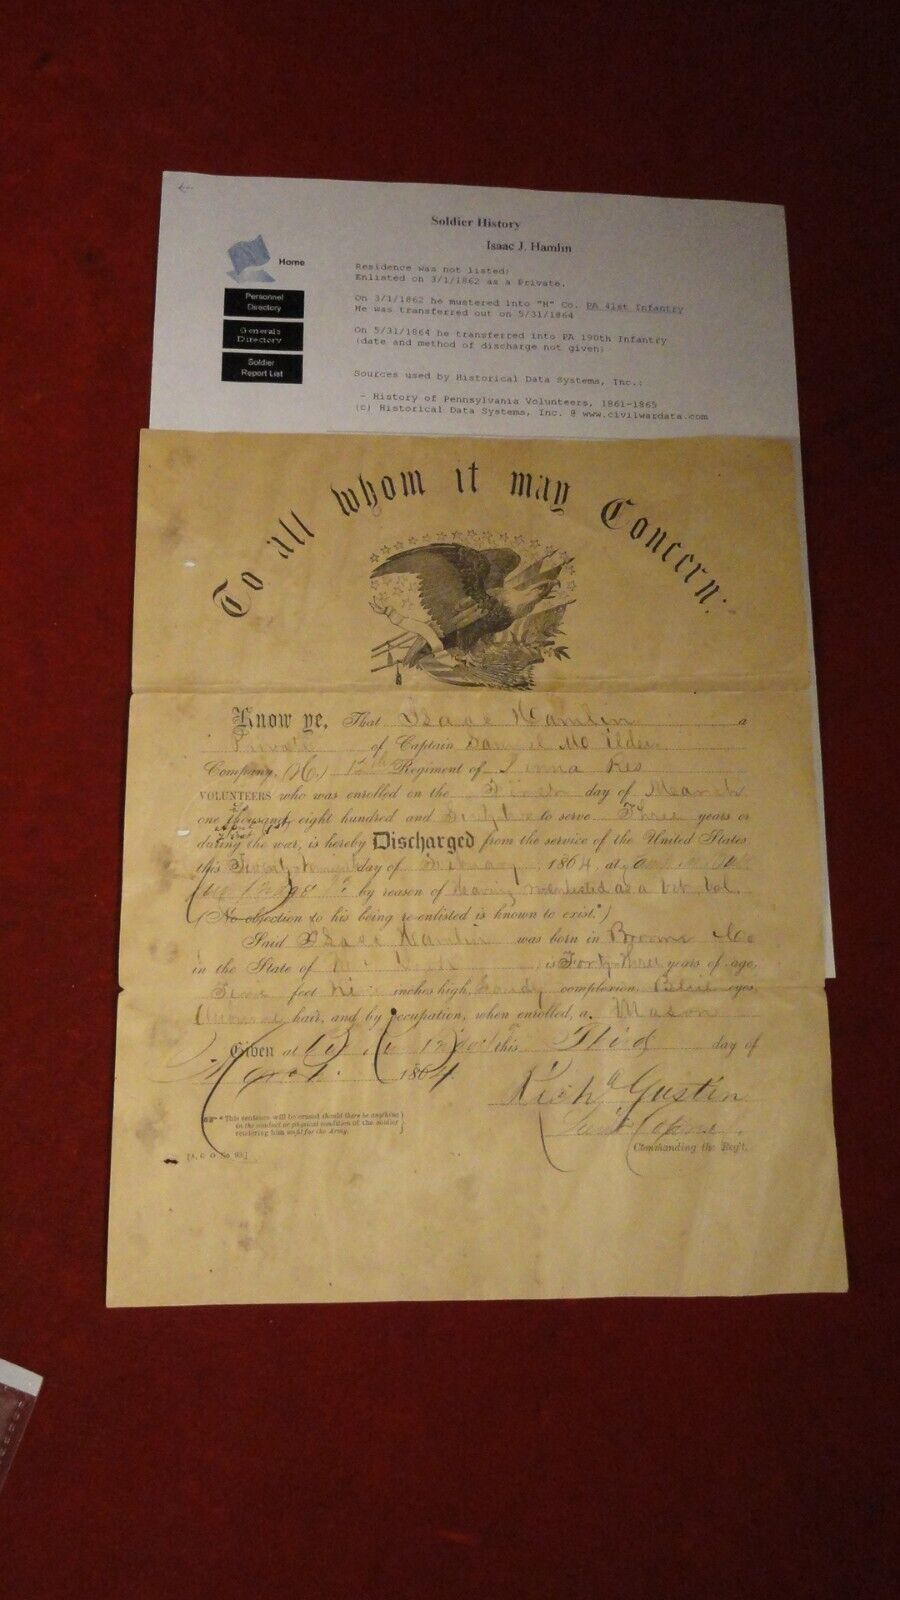 Soldier History
Isaac J. Hamlin
Home
Personnel
Directory
Generals
Directory
Soldier
Report List
Residence was not listed;
Enlisted on 3/1/1862 as a Private.
On 3/1/1862 he mustered into "H" Co. PA 41st Infantry
He was transferred out on 5/31/1864
On 5/31/1864 he transferred into PA 190th Infantry
(date and method of discharge not given)
Sources used by Historical Data Systems, Inc.:
- History of Pennsylvania Volunteers, 1861-1865
(c) Historical Data Systems, Inc. @ www.civilwardata.com
To all whom it may Concern:
Know ye, That Isaac Hamlin a
Private of Captain Samuel
Company, (H.) 12th Regiment of Penna Res
VOLUNTEERS who was enrolled on the day of March
one thousand eight hundred and to serve Three years or
during the war, is hereby Discharged from the service of the United States
this Twenty day of February 1864, at
by reason of having reenlisted as a Vet. Vol.
(No objection to his being re-enlisted is known to exist.*)
Said Isaac Hamlin was born in Broome Co
in the State of is Forty Three years of age,
feet inches high, Sandy complexion, Blue eyes,
hair, and by occupation, when enrolled, a Mason
Given at this Third day of
March 1864.
Richd Gustin
Commanding the Reg't.
*This sentence will be erased should there be anything
in the conduct or physical condition of the soldier
rendering him unfit for the Army.
[A. G. O. No. 99.]